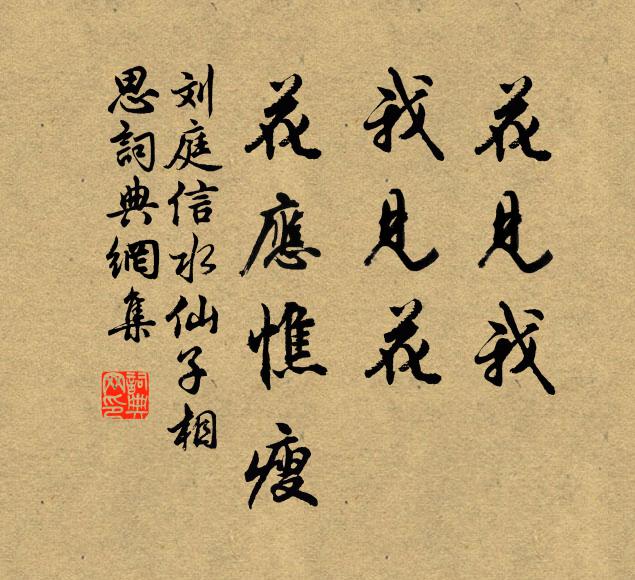 花見我
我見花
花應憔瘦
刘庭信水仙子相
思詞典網集
詞典
网印